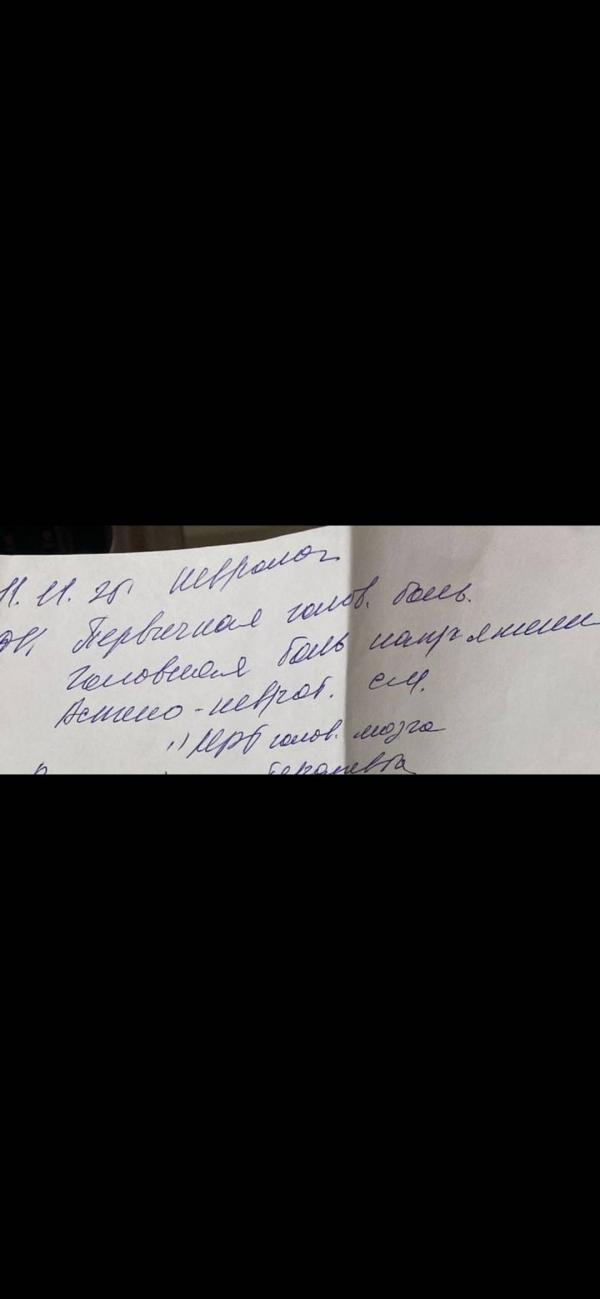 11. 11. 25. невролог
Первичная голов. боль.
головная боль напряжени
Астено-неврот. с-м.
1) МРТ голов. мозга
терапевта